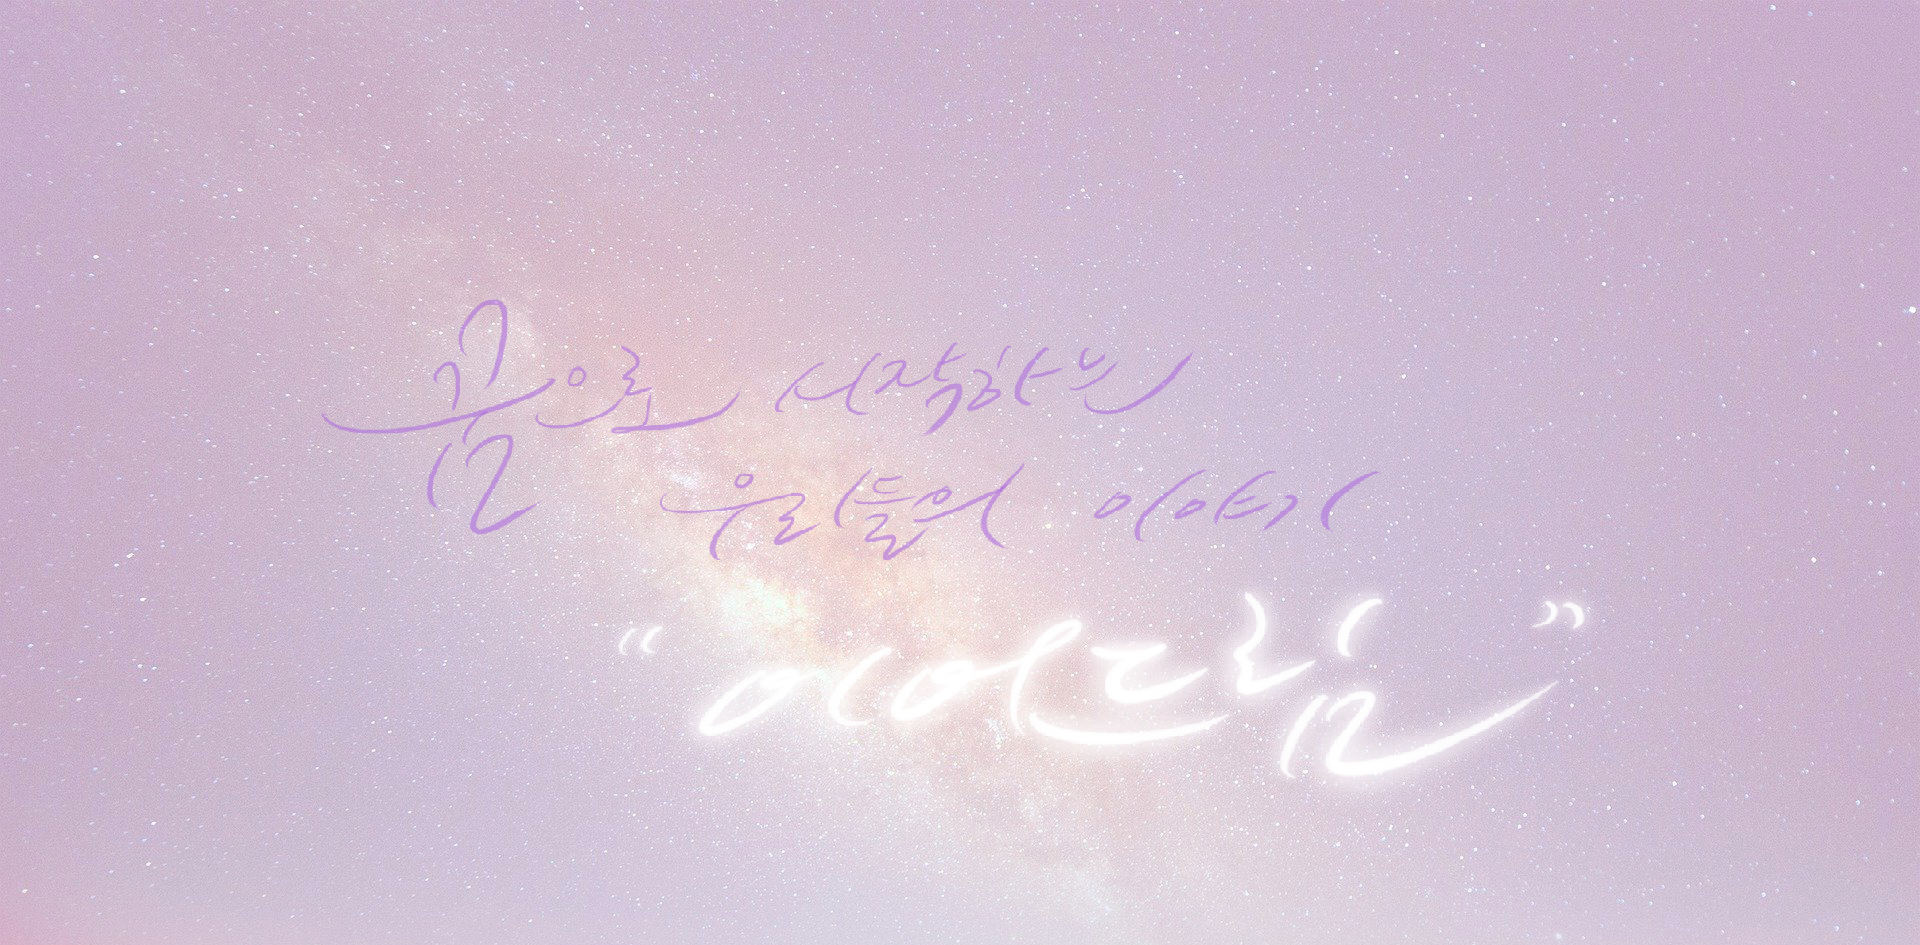 꿈으로 시작하는
우리들의 이야기
“이어드림”